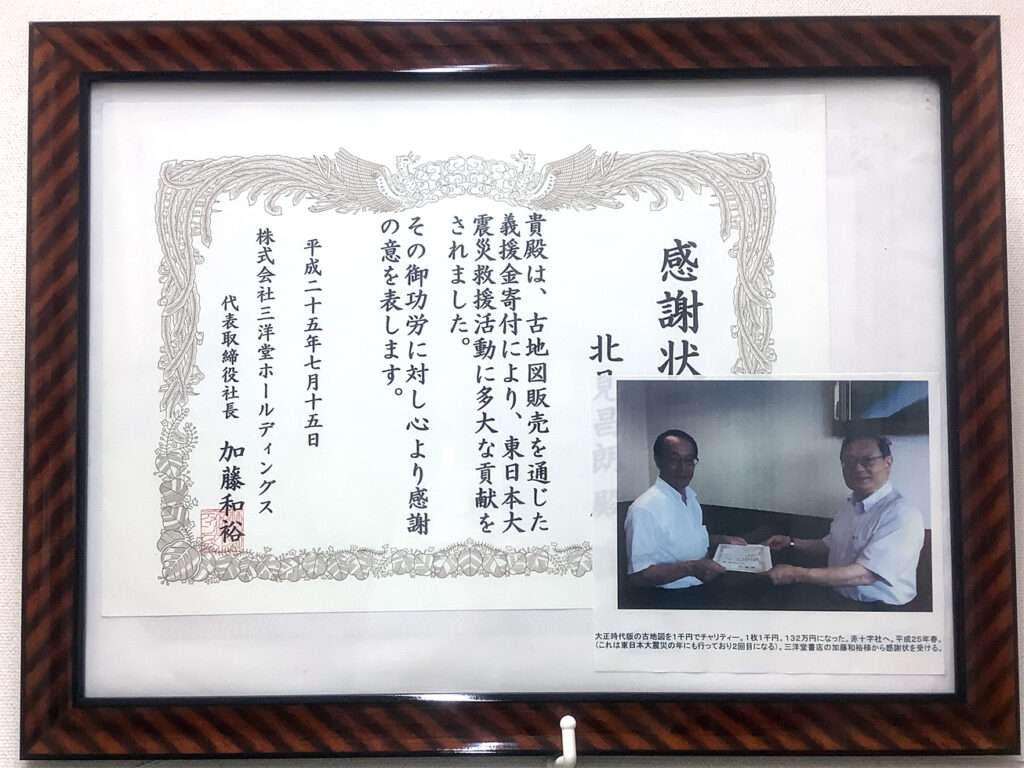 感謝状
北見昌朗 殿
貴殿は、古地図販売を通じた
義援金寄付により、東日本大
震災救援活動に多大な貢献を
されました。
その御功労に対し心より感謝
の意を表します。
平成二十五年七月十五日
株式会社三洋堂ホールディングス
代表取締役社長 加藤和裕
大正時代版の古地図を1千円でチャリティー。1枚1千円。132万円になった。赤十字社へ。平成25年春。
(これは東日本大震災の年にも行っており2回目になる)。三洋堂書店の加藤和裕様から感謝状を受ける。